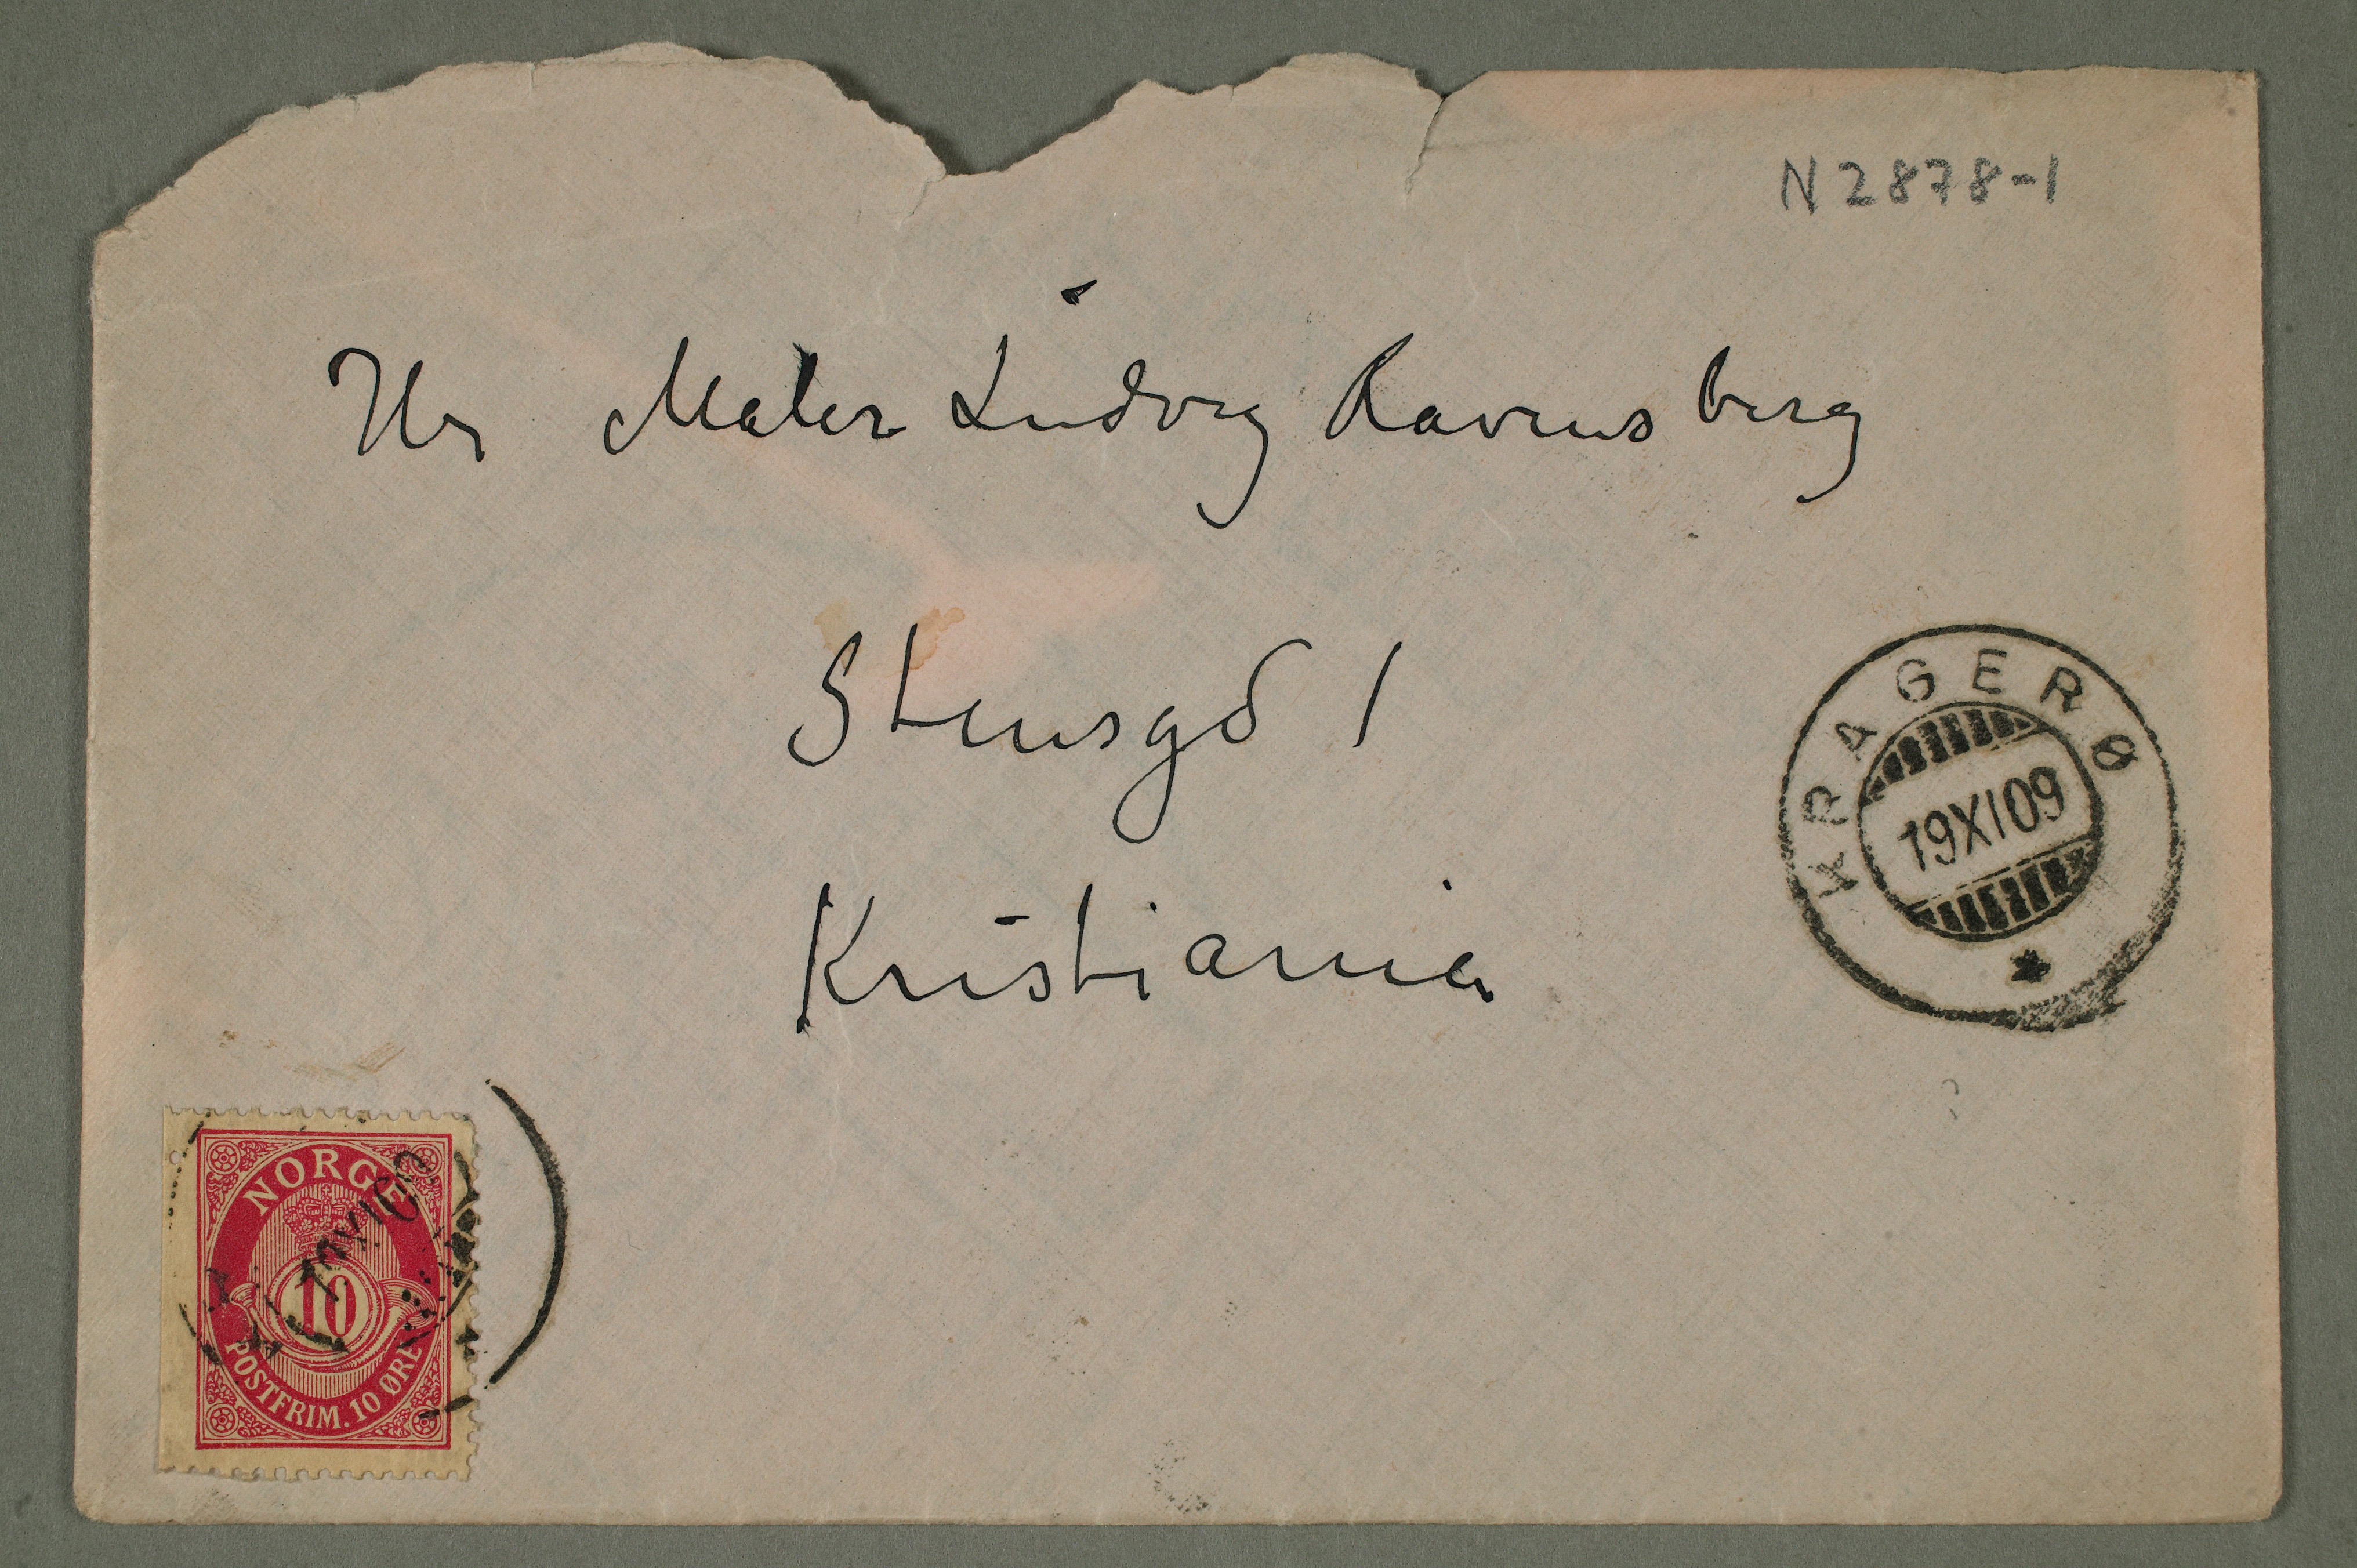 N 2878-1
Hr Maler Ludvig Ravensberg
Stensgd 1
Kristiania
KRAGERØ
19 XI 09
NORGE
10
POSTFRIM. 10 ØRE